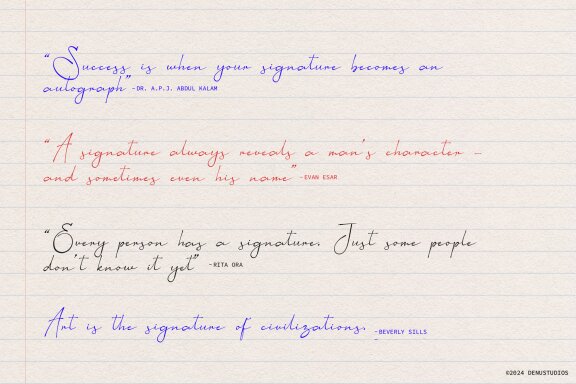 “Success is when your signature becomes an
autograph” -DR. A.P.J. ABDUL KALAM
“A signature always reveals a man's character –
and sometimes even his name” -EVAN ESAR
“Every person has a signature. Just some people
don't know it yet” -RITA ORA
Art is the signature of civilizations. -BEVERLY SILLS
-
©2024 DENUSTUDIOS